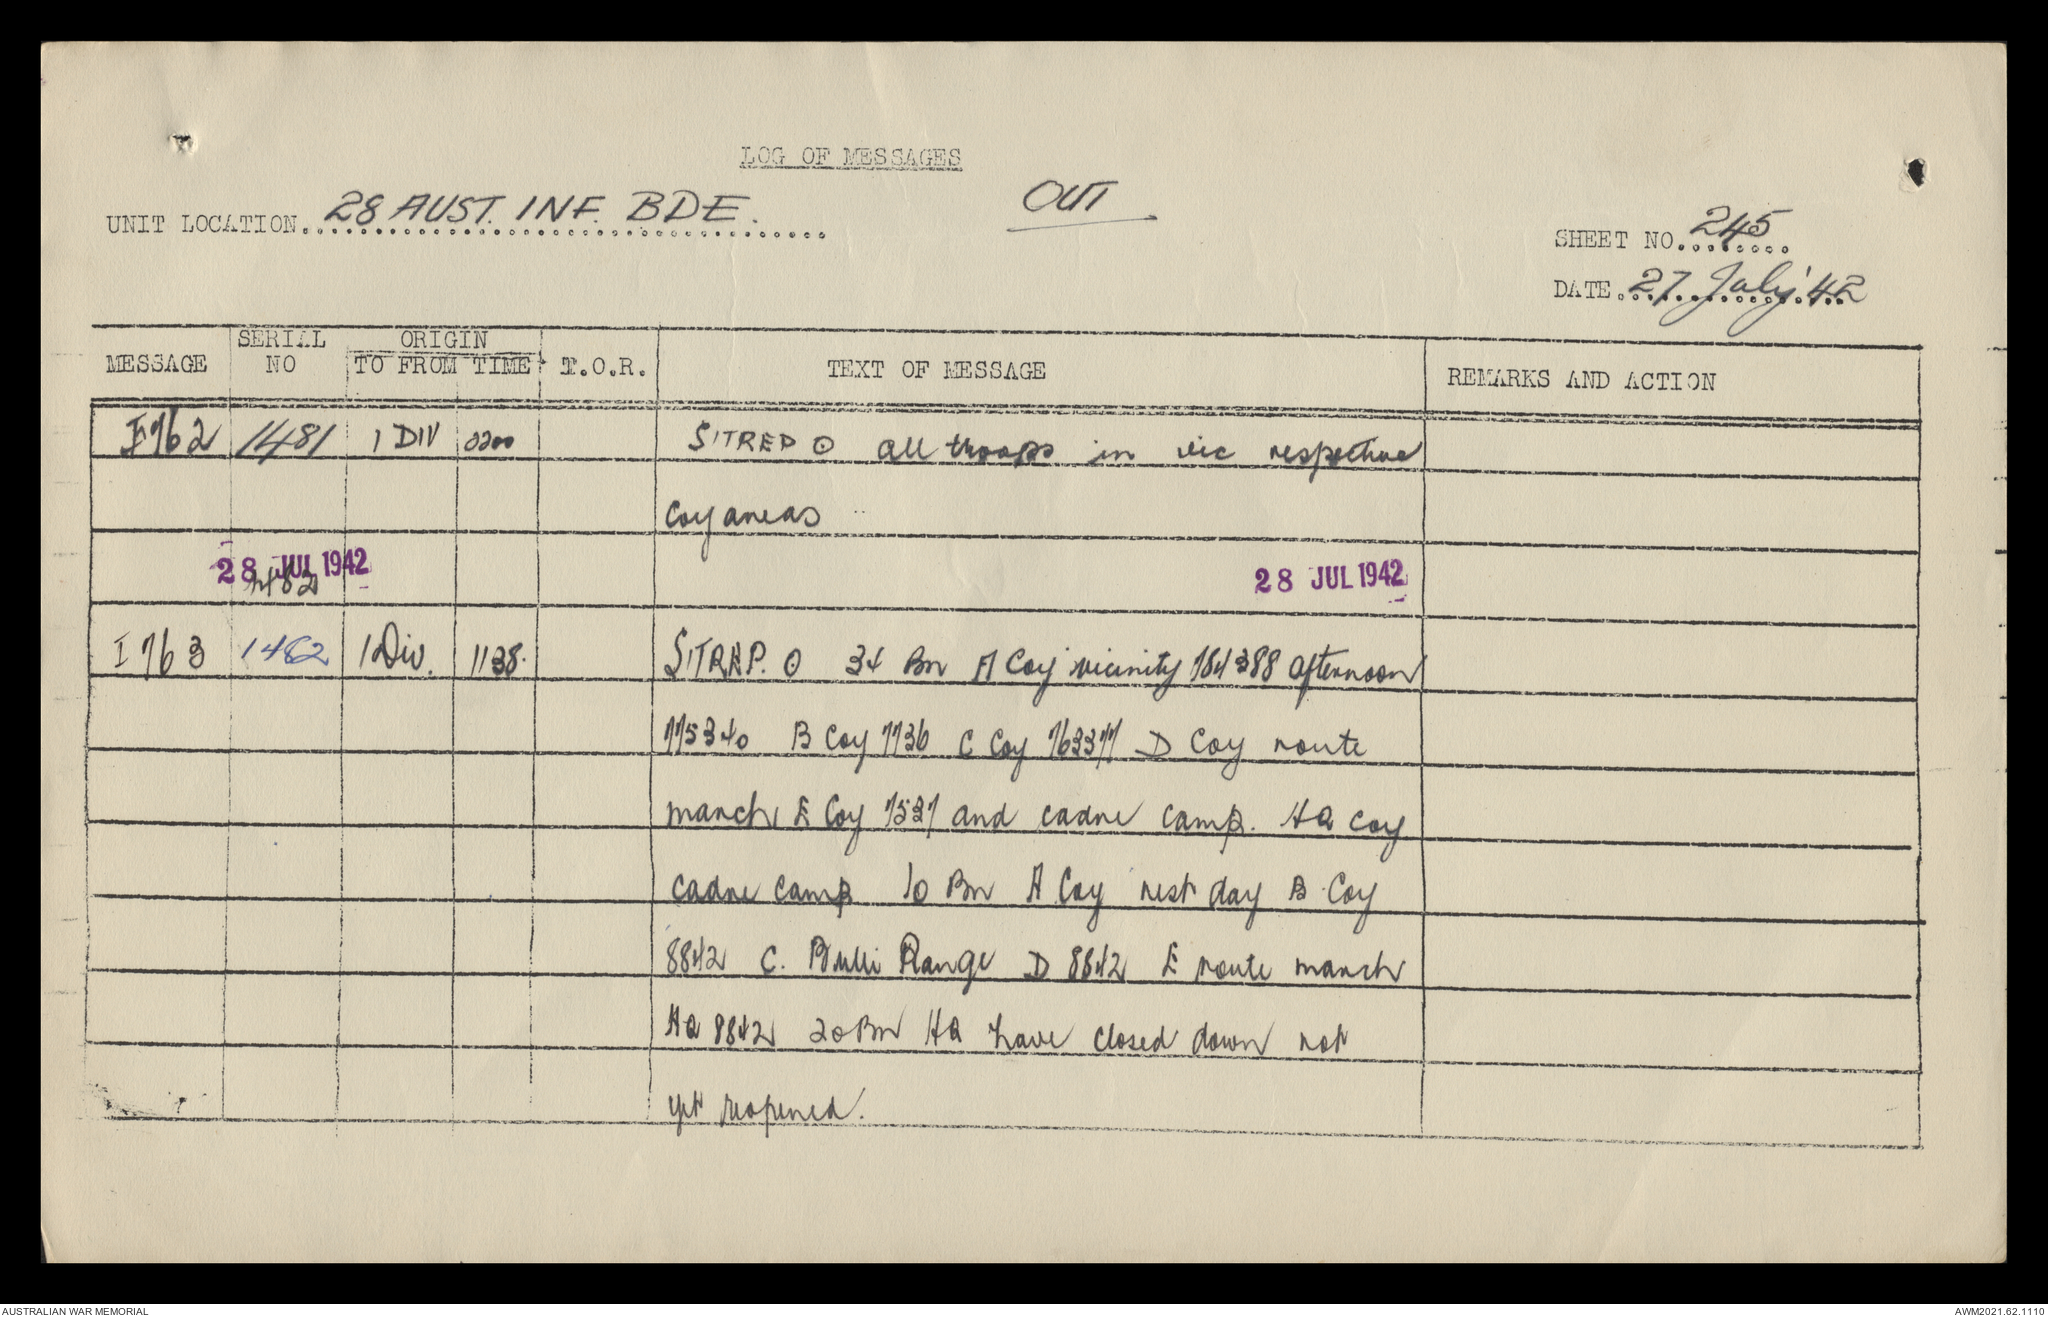 LOG OF MESSAGES
UNIT LOCATION 28 AUST. INF. BDE. OUT
SHEET NO. 245
DATE 27 July '42
MESSAGE SERIAL NO ORIGIN TO FROM TIME T.O.R. TEXT OF MESSAGE REMARKS AND ACTION
I762 1481 1 DIV 2200 SITREP ⊙ all troops in vic respective
Coy areas
28 JUL 1942 28 JUL 1942
1482
I 763 1482 1 Div. 1138. SITREP. ⊙ 34 Bn A Coy vicinity 784388 afternoon
775340 B Coy 7736 C Coy 763377 D Coy route
march E Coy 7537 and cadre camp. HQ Coy
cadre camp 10 Bn A Coy rest day B Coy
8842 C. Bulli Range D 8842 E route march
HQ 8842 20 Bn HQ have closed down not
yet reopened.
AUSTRALIAN WAR MEMORIAL AWM2021.62.1110